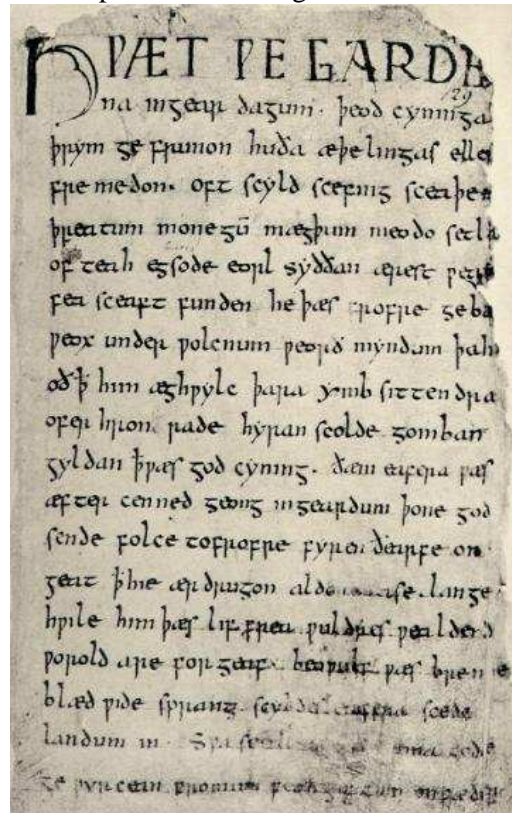 HǷÆT ǷE GARDE
na ingear dagum · þeod cyninga
þrym ge frunon huða æþelingas elle
fre medon · oft scyld scefing sceaþe
þreatum monegū mægþum meodo setla
of teah egsode eorl syððan ærest ƿe
fea sceaft funden he þæs frofre geba
ƿeox under ƿolcnum ƿeorð myndum þah
oð ꝥ him æghƿylc þara ymb sittendra
ofer hron rade hyran scolde gomban
gyldan ꝥ ƿæs god cyning · ðæm eafera ƿæs
æfter cenned geong ingeardum þone god
sende folce tofrofre fyren ðearfe on
geat ꝥ hie ær drugon aldor ase · lange
hƿile him þæs lif frea ƿuldres ƿealdend
ƿorold are for geaf · beoƿulf ƿæs breme
blæd ƿide sprang scyldes eafera scede
landum in · Sƿa ma gode
ge ƿyrcean fromum